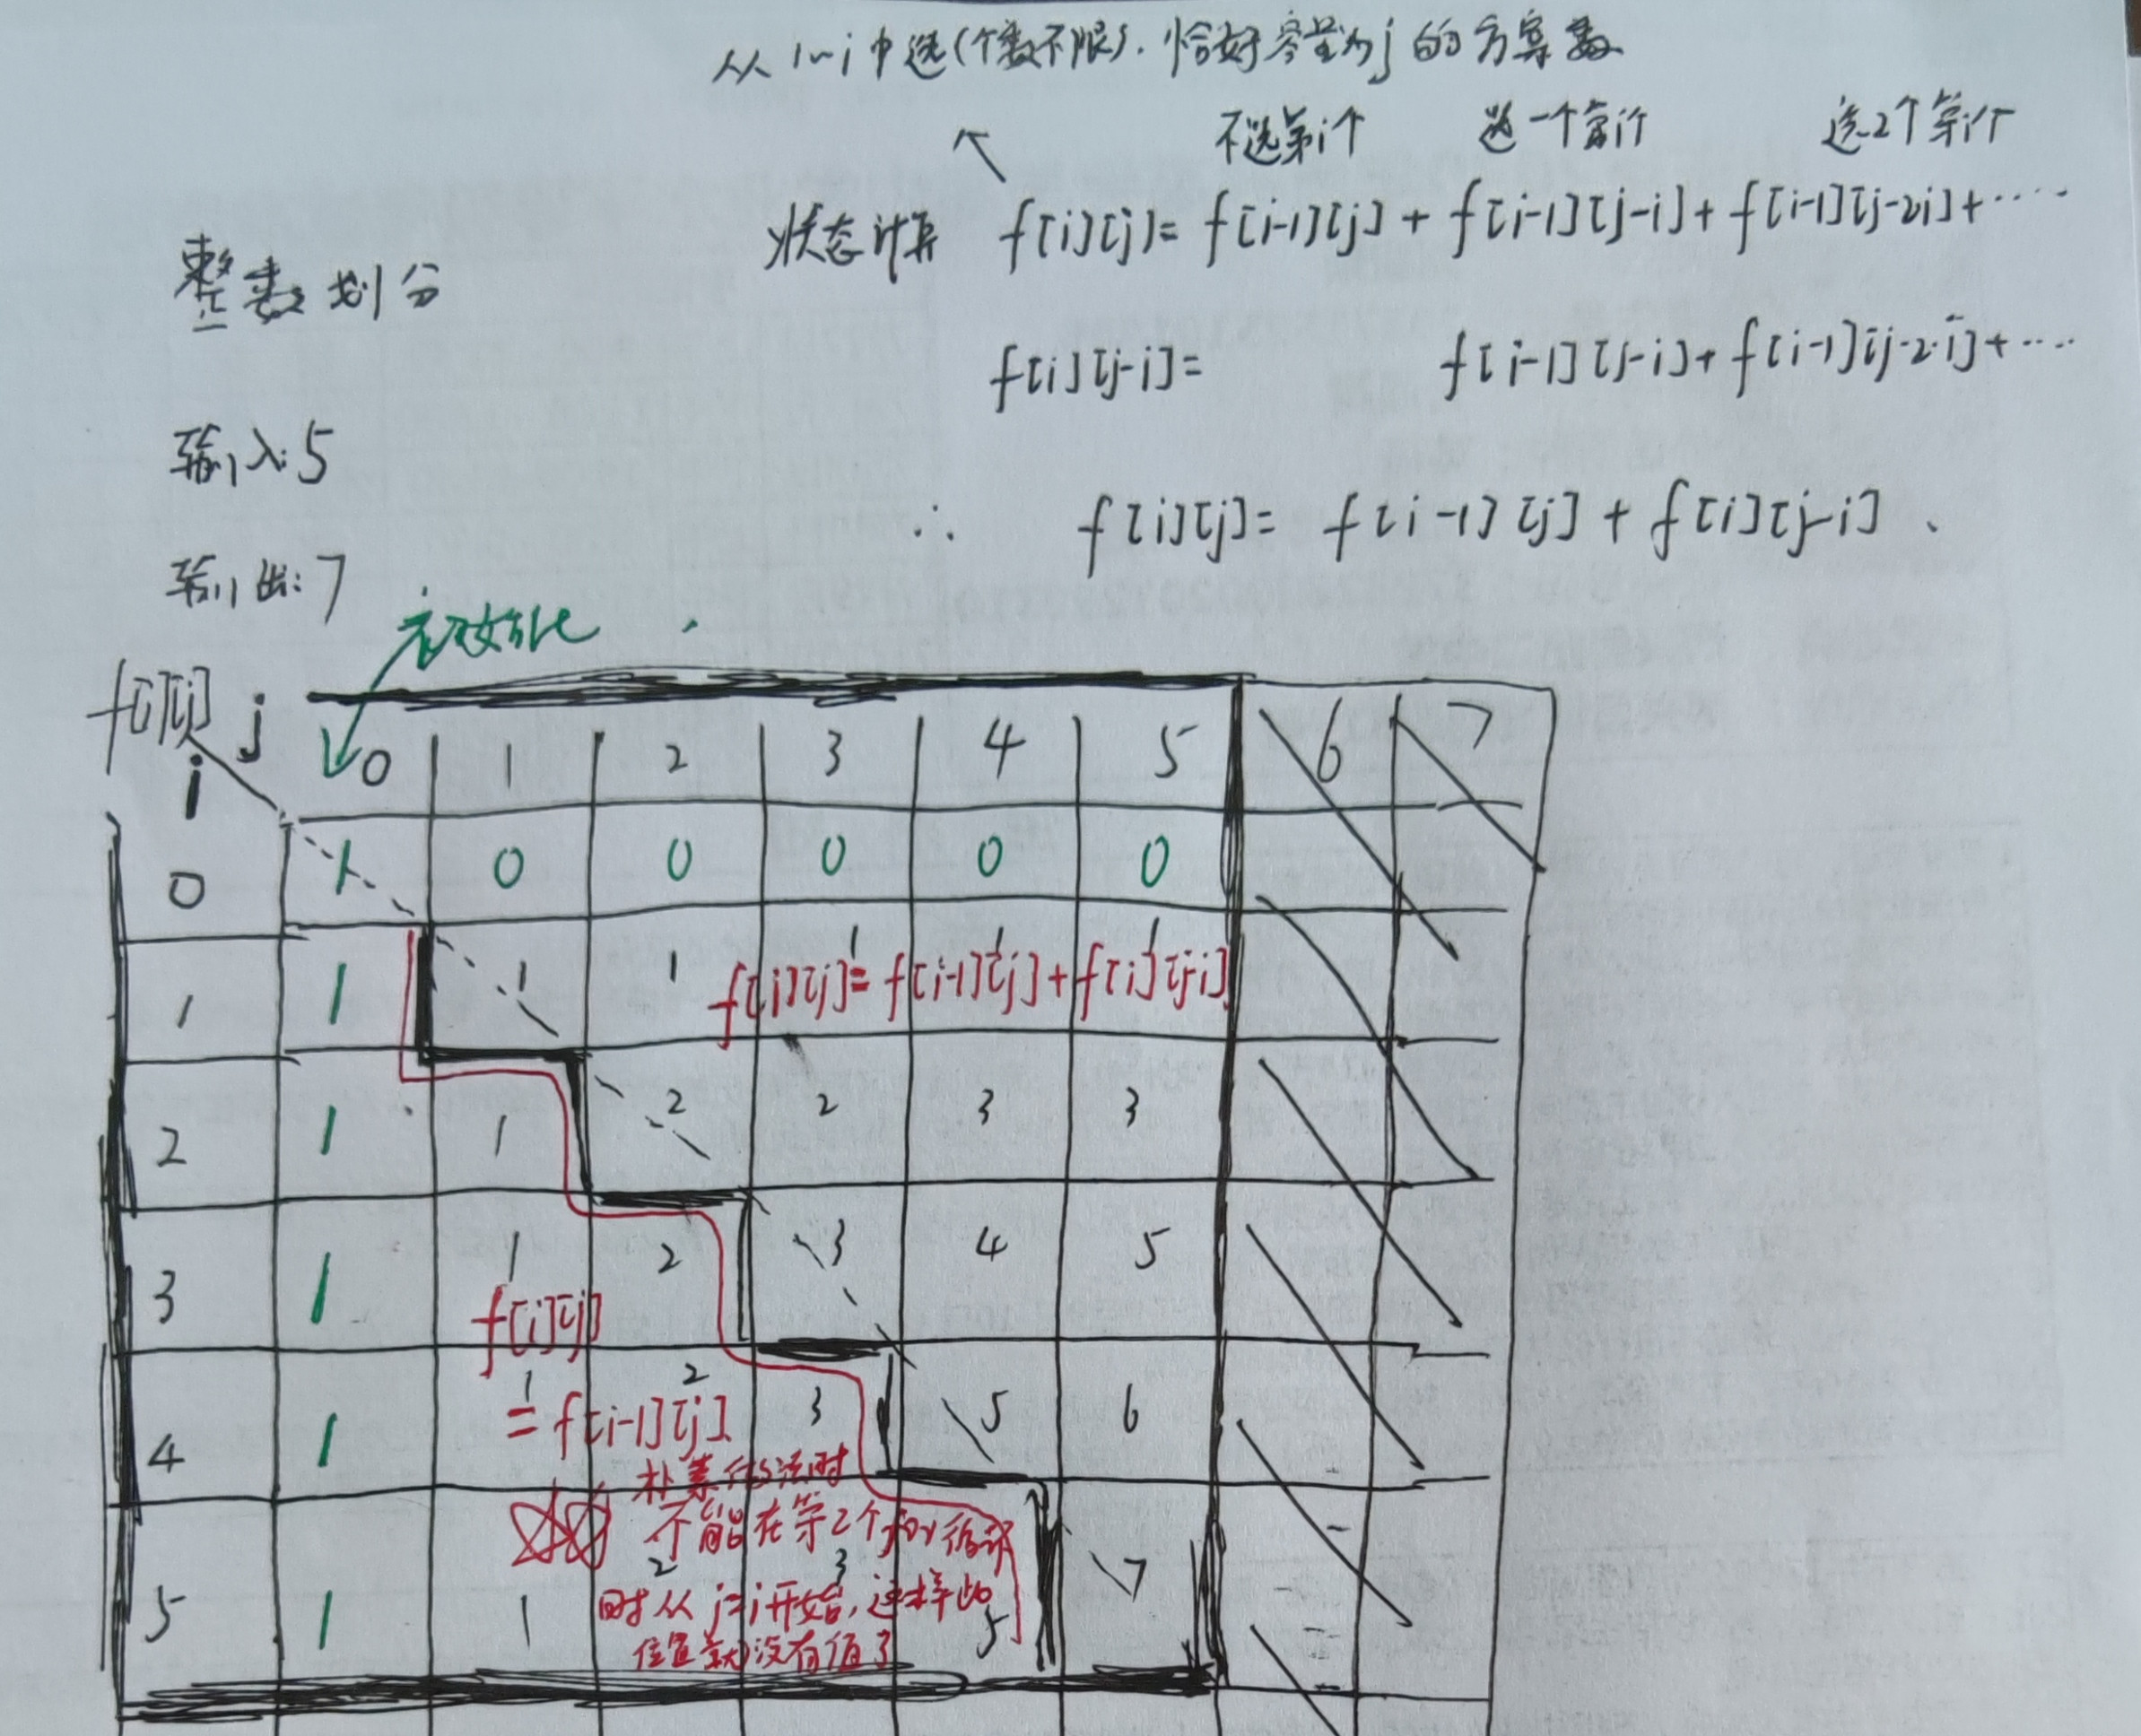 从1~i中选(个数不限).恰好容量为j的方案数
不选第i个 选一个第i个 选2个第i个
状态计算 f[i][j]= f[i-1][j] + f[i-1][j-i]+ f[i-1][j-2i]+····
整数划分
f[i][j-i]= f[i-1][j-i]+ f[i-1][j-2·i]+····
输入:5
∴ f[i][j]= f[i-1][j] + f[i][j-i] .
输出:7
初始化
f[i][j] j 0 1 2 3 4 5 6 7
i
0 1 0 0 0 0 0
1 1 1 1 1 1 1
f[i][j]= f[i-1][j]+f[i][j-i]
2 1 1 2 2 3 3
3 1 1 2 3 4 5
f[i][j]
4 1 1 2 3 5 6
= f[i-1][j]
朴素做法时
不能在第2个for循环
5 1 1 2 3 5 7
时从j=i开始,这样此
位置就没有值了